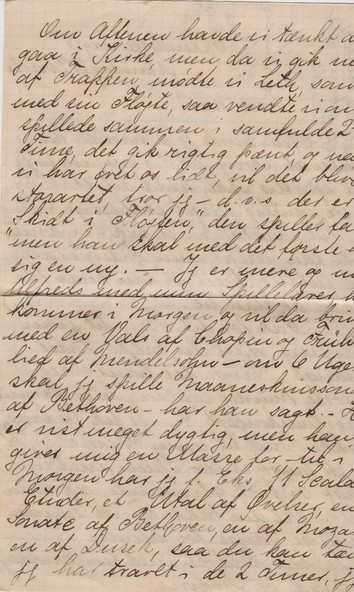 Om Aftenen havde vi tænkt a
gaa i Kirke, men da vi gik ne
af Trappen, mødte vi Leth, som
med sin Fløjte, saa vendte vi om
spillede sammen i samfulde 2
Time, det gik rigtig pænt, og naa
vi har øvet os lidt, vil det bliv
apartet, tror jeg - d.v.s. der er
Skidt i „Fløjten", den spilles fa
"men han skal med det første
sig en ny. — Jeg er mere og m
tilfreds med min Spillelærer,
kommer i Morgen, og vil da brin
med en Vals af Chopin og Früh
lied af Mendelsohn - om 6 Uger
skal jeg spille Maaneskinsson
af Bethoven - har han sagt. - H
er vist meget dygtig, men han
giver mig en Masse for - til i
Morgen har jeg f. Eks. 11 Scala
Etuder, et Utal af Øvelser, en
Sonate af Bethoven, en af Mozar
en af Dusek, saa du kan tæn
jeg har travlt i de 2 Timer, j